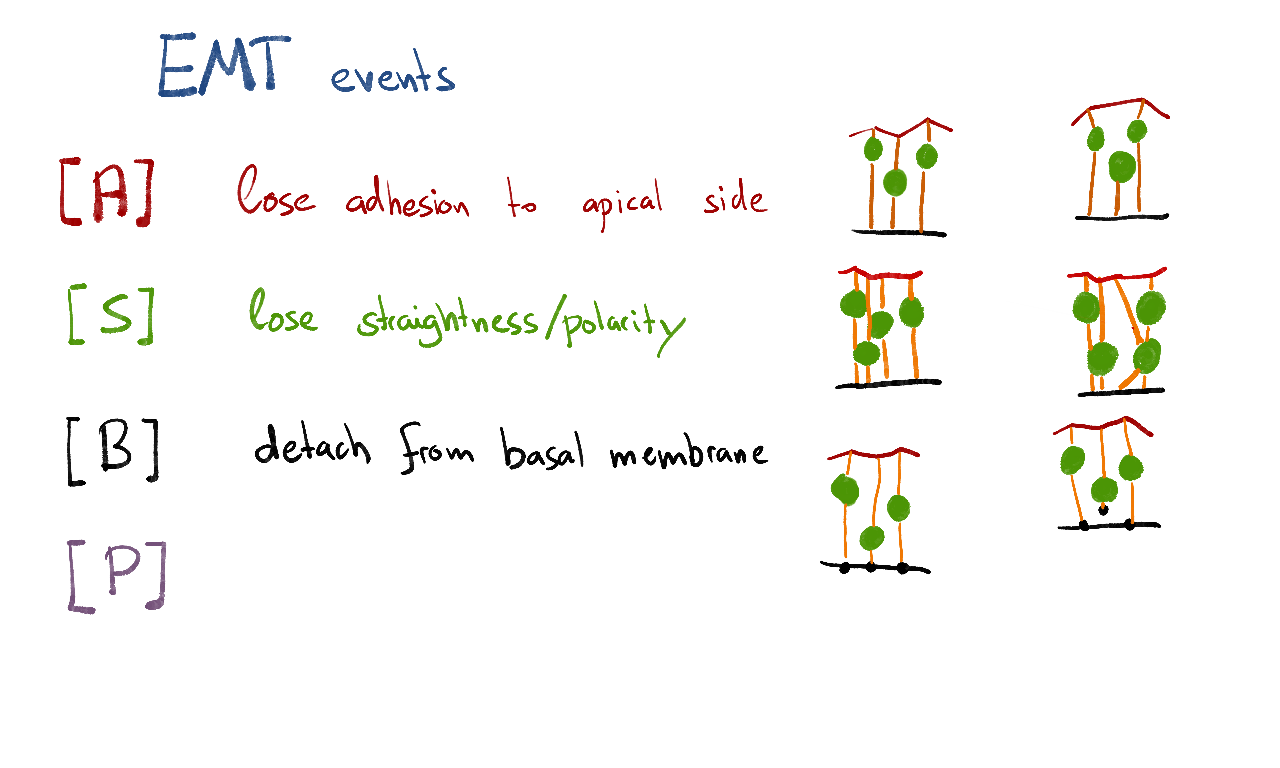 EMT events
[A] lose adhesion to apical side
[S] lose straightness/polarity
[B] detach from basal membrane
[P]